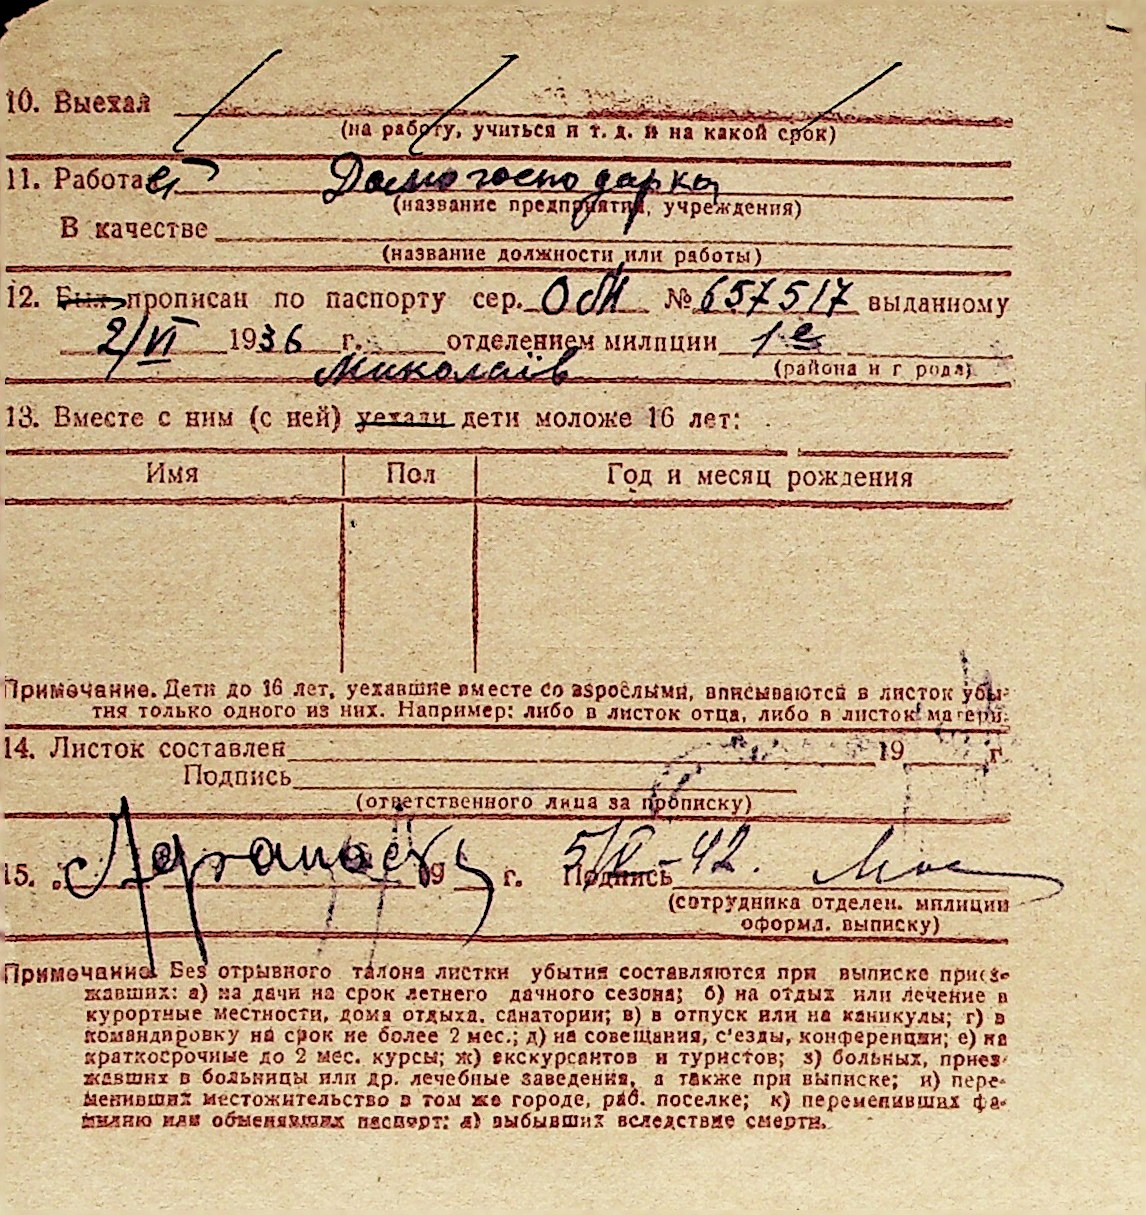 10. Выехал
(на работу, учиться и т. д. и на какой срок)
11. Работает Домогосподарка
(название предприятия, учреждения)
В качестве
(название должности или работы)
12. Был прописан по паспорту сер. ОБМ № 657517 выданному
2/VI 1936 г. отделением милиции 1е
Миколаїв (района и г рода)
13. Вместе с ним (с ней) уехали дети моложе 16 лет:
Имя Пол Год и месяц рождения
Примечание. Дети до 16 лет, уехавшие вместе со взрослыми, вписываются в листок убы-
тия только одного из них. Например: либо в листок отца, либо в листок матери.
14. Листок составлен 19 г.
Подпись
(ответственного лица за прописку)
15. „ 19 г. 5/IX-42. Подпись
(сотрудника отделен. милиции
оформл. выписку)
Примечание. Без отрывного талона листки убытия составляются при выписке приез-
жавших: а) на дачи на срок летнего дачного сезона; б) на отдых или лечение в
курортные местности, дома отдыха, санатории; в) в отпуск или на каникулы; г) в
командировку на срок не более 2 мес.; д) на совещания, с'езды, конференции; е) на
краткосрочные до 2 мес. курсы; ж) экскурсантов и туристов; з) больных, приез-
жавших в больницы или др. лечебные заведения, а также при выписке; и) пере-
менивших местожительство в том же городе, раб. поселке; к) переменивших фа-
милию или обменявших паспорт; л) выбывших вследствие смерти.